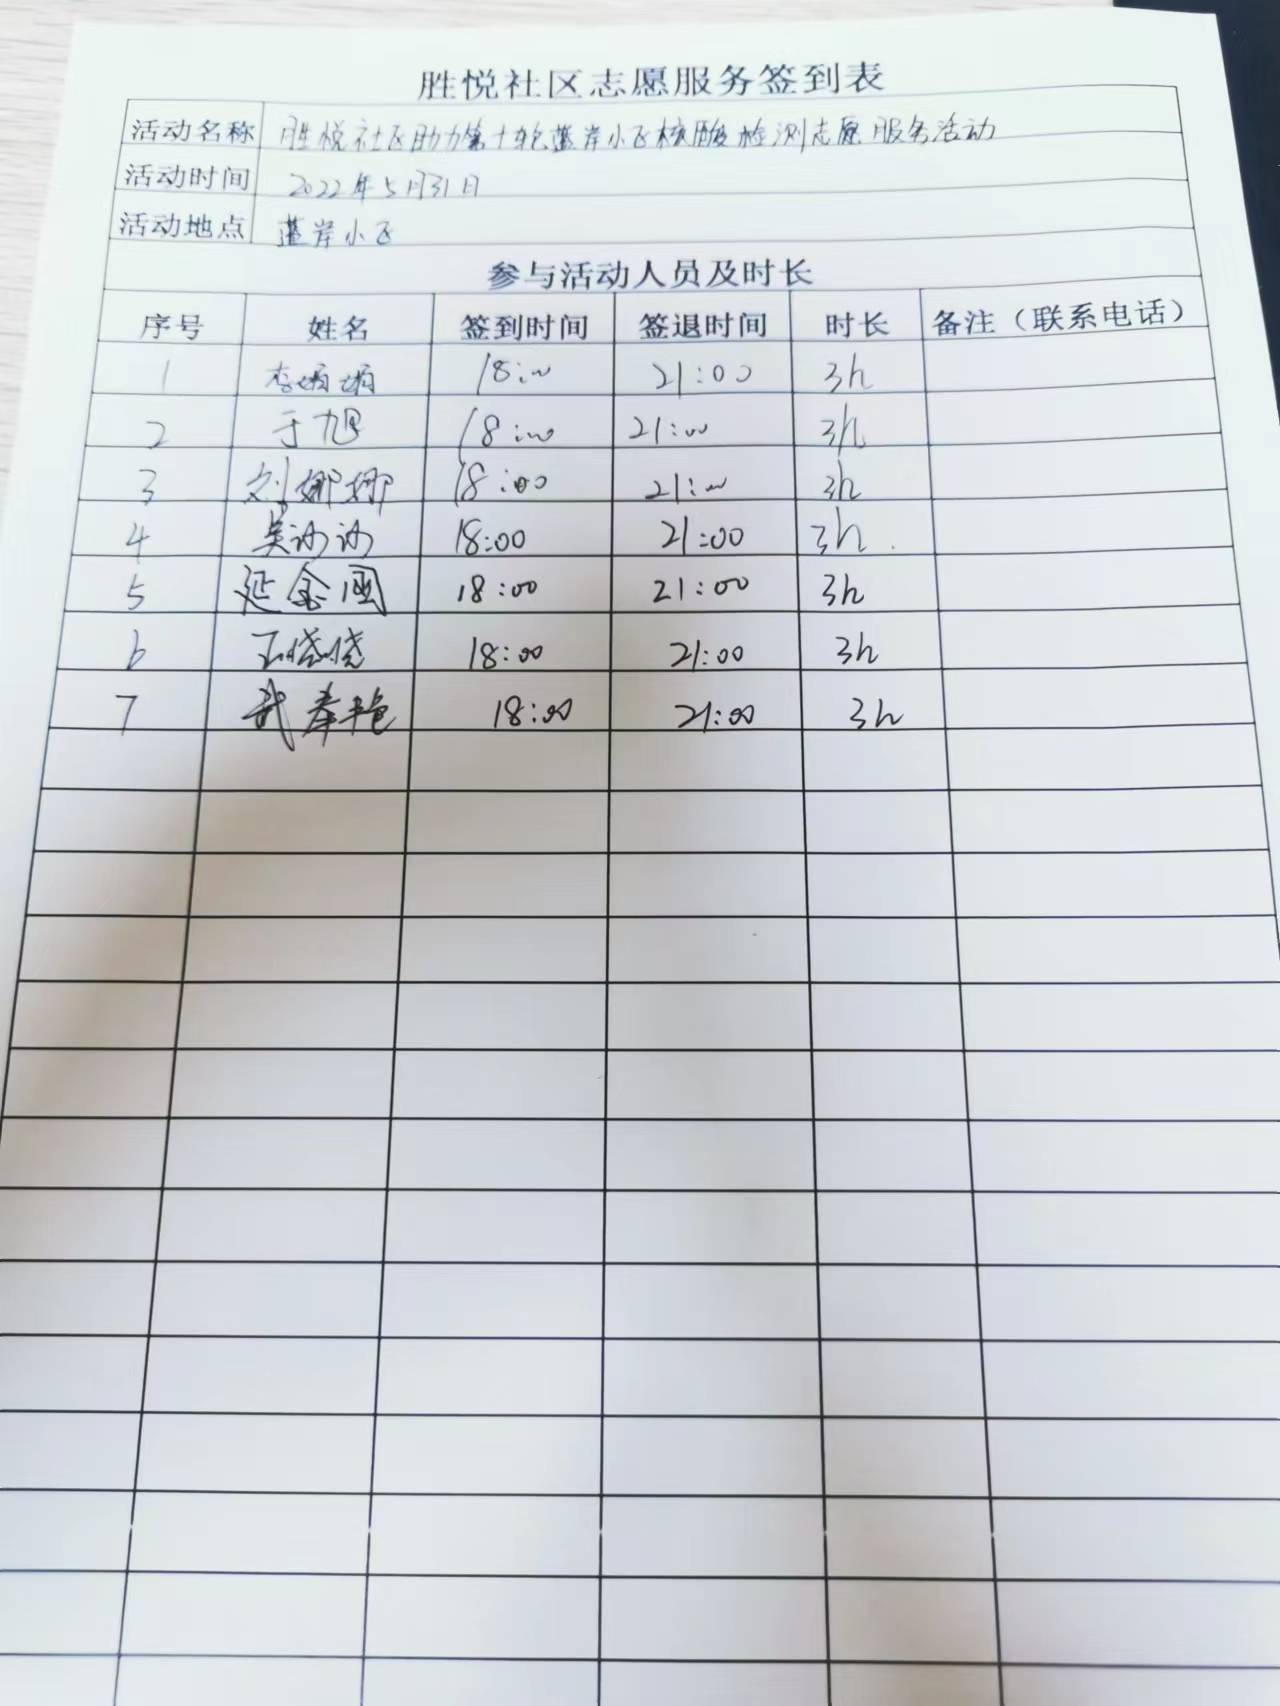 胜悦社区志愿服务签到表
活动名称 胜悦社区助力第十轮蓝岸小区核酸检测志愿服务活动
活动时间 2022年5月31日
活动地点 蓝岸小区
参与活动人员及时长
序号 姓名 签到时间 签退时间 时长 备注（联系电话）
1 李娟娟 18:00 21:00 3h
2 于旭 18:00 21:00 3h
3 刘娜娜 18:00 21:00 3h
4 吴汐汐 18:00 21:00 3h
5 延金国 18:00 21:00 3h
6 王晓晓 18:00 21:00 3h
7 武春艳 18:00 21:00 3h